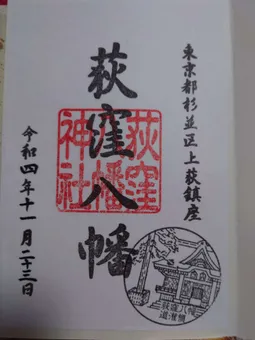 東京都杉並区上荻鎮座
荻窪八幡
荻窪八幡神社
令和四年十一月二十三日
荻窪八幡
道灌槇